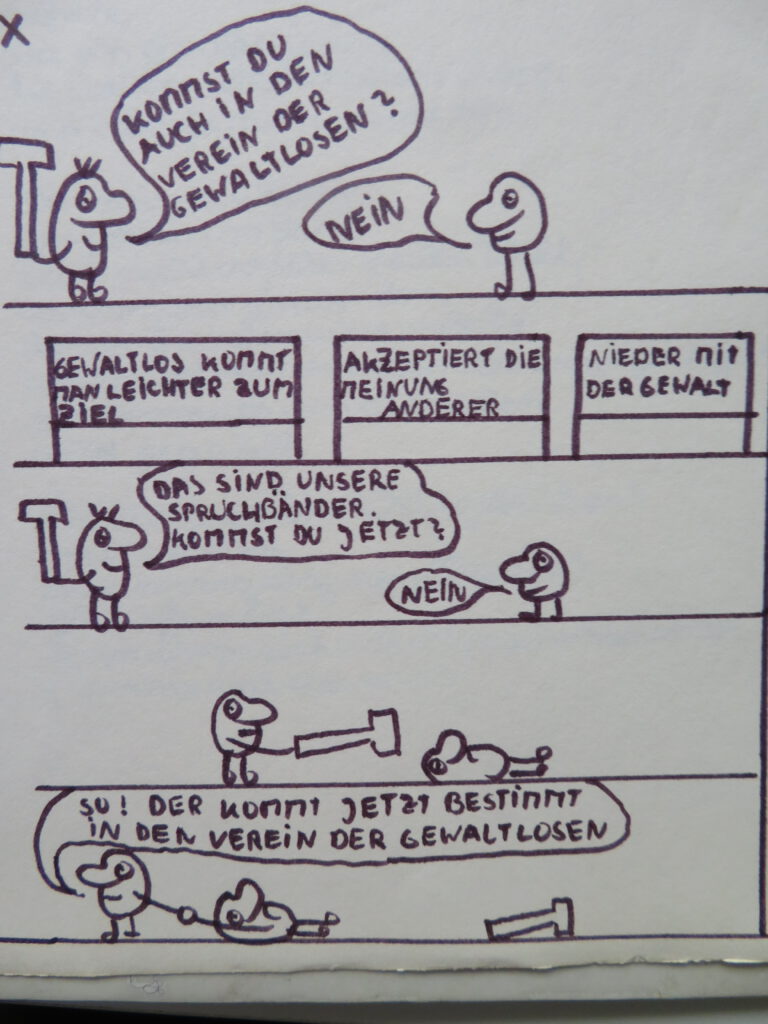 X
KOMMST DU
AUCH IN DEN
VEREIN DER
GEWALTLOSEN?
NEIN
GEWALTLOS KOMMT
MAN LEICHTER ZUM
ZIEL
AKZEPTIERT DIE
MEINUNG
ANDERER
NIEDER MIT
DER GEWALT
DAS SIND UNSERE
SPRUCHBÄNDER.
KOMMST DU JETZT?
NEIN
SO! DER KOMMT JETZT BESTIMMT
IN DEN VEREIN DER GEWALTLOSEN